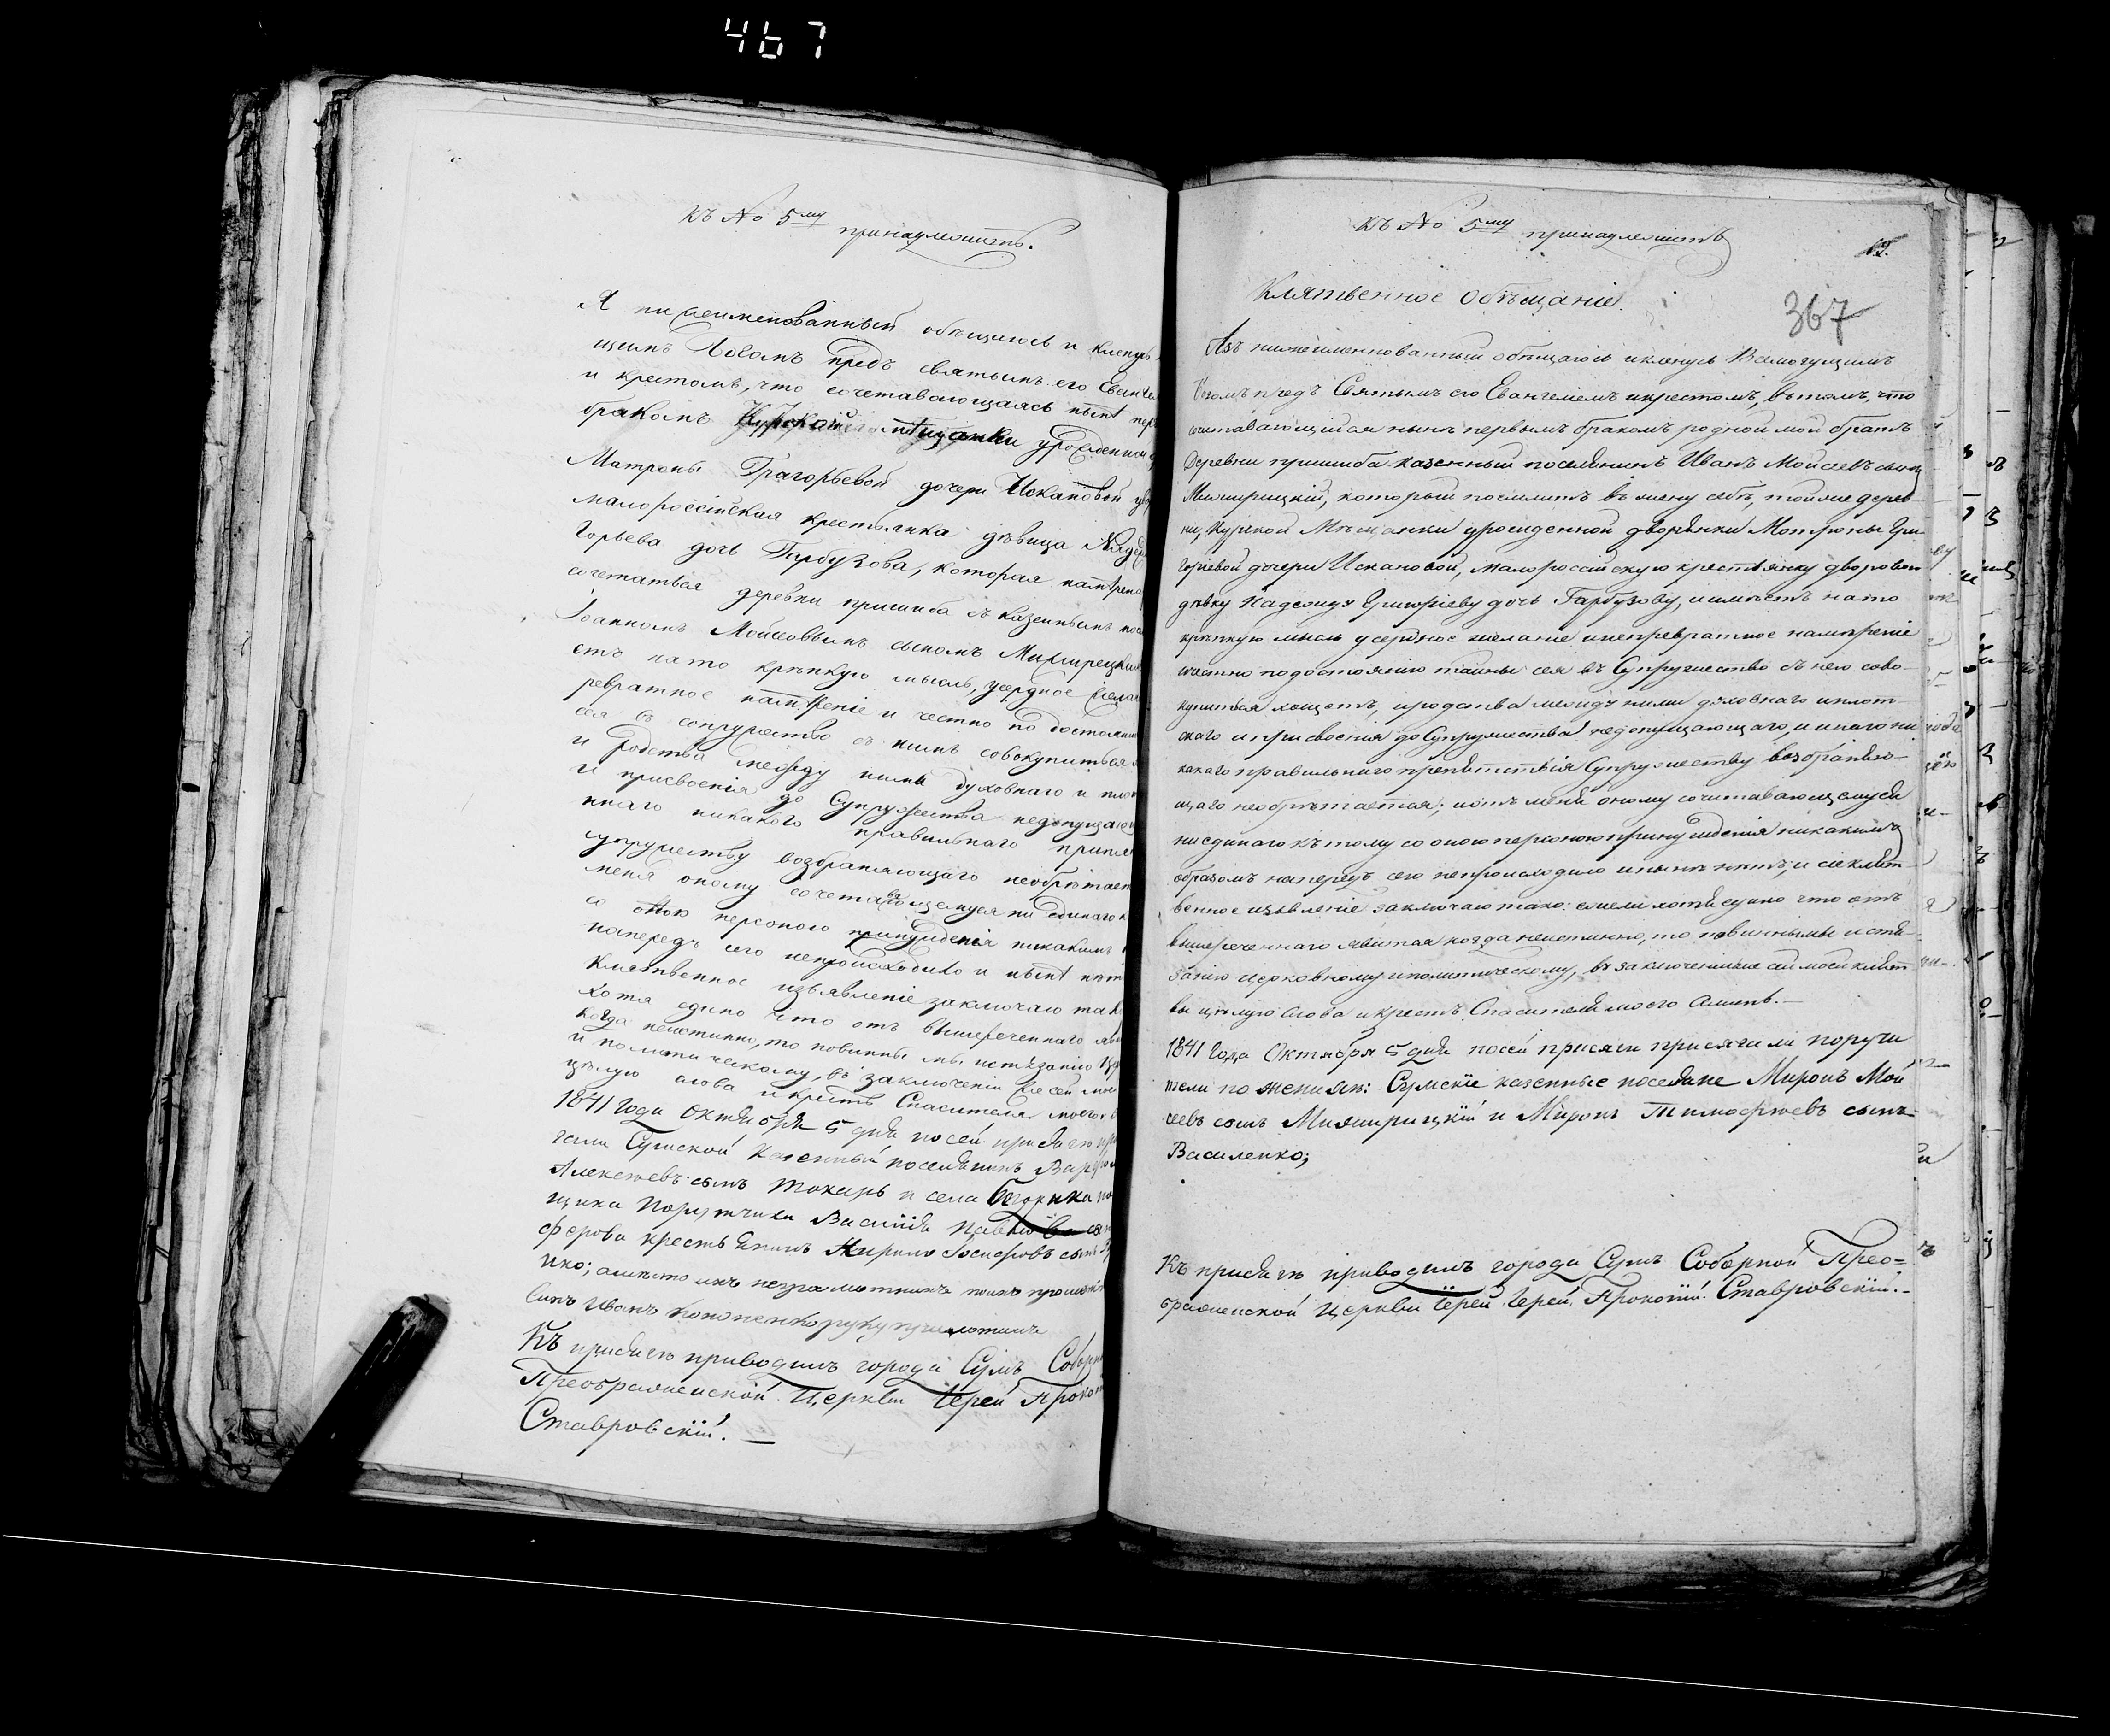 467
къ № 5му принадлежитъ.
Я нижеименованный обѣщаюсь и кленусь
щимъ Богомъ предъ святымъ его Еванге
и крестомъ, что сочетавающаясь нынѣ пер
бракомъ Курской мѣщанки урожденной
Матроны Григорьевой дочери Искановой
малороссійская крестьянка дѣвица Надеж
горьева дочь Гарбузова, которая намѣрена
сочетаться деревни пришиба съ казеннымъ посе
Іоанномъ Мойсеовымъ сыномъ Миширецким
етъ на то крѣпкую мысль, усердное желан
ревратное намѣреніе и честно по достоянію
сея въ сопружество съ нимъ совокупиться
и родства между ними духовнаго и плот
и присвоенія до Супружества недопущаю
инаго никакого правильнаго препят
упружеству возбраняющаго необрѣтает
меня оному сочетавающемуся ни единаго к
со оною персоною принужденія никакимъ
напередъ сего непроисходило и нынѣ нѣт
Клятвенное изъявленіе заключаю так
хотя едино что отъ вышереченнаго яви
когда неистинно, то повинны мы истязанію
и политическому, въ заключеніи же сей мое
цѣлую слова и крестъ Спасителя моего.
1841 года Октября 5 дня по сей присягѣ при
гали Сумской Казенный поселянинъ
Алексѣевъ сынъ Токарь и села
щика Порутчика Василія Павлова сы
ферова крестьянинъ Кирило Іосифовъ сынъ
нко; а вмѣсто ихъ неграмотныхъ
Иванъ Кононенко руку приложилъ
Къ присягѣ приводилъ города Сумъ Собор
Преображенской Церкви Іерей Проко
Ставровскій.
къ № 5му принадлежитъ
19.
367
Клятвенное Обѣщаніе.
Азъ нижеименнованный обѣщаюсь и кленусь Всемогущимъ
Богомъ предъ Святымъ его Евангеліемъ и крестомъ, въ томъ, что
сочетавающійся нынѣ первымъ бракомъ родной мой братъ
Деревни пришиба казенный поселянинъ Иванъ Мойсеевъ сынъ
Миширицкій, который поемлитъ въ жену себѣ, той же дерев
ни, Курской Мѣщанки урожденной дворянки Матроны Гри
горіевой дочери Искановой, малороссійскую крестьянку дворовою
дѣвку Надежду Григоріеву дочь Гарбузову, и имѣетъ на то
крѣпкую мысль усердное желаніе и непревратное намѣреніе
и честно по достоянію тайны сея въ Супружество съ нею сово-
купиться хощетъ, и родства между ними духовнаго и плот
скаго и присвоенія до Супружества недопущающаго, и инаго ни
какаго правильнаго препятствія Супружеству возбраняю-
щаго необрѣтается; и отъ меня оному сочитавающемуся
ни единаго къ тому со оною персоною принужденія никакимъ
образомъ напередъ сего непроисходило и нынѣ нѣтъ, и сіе клят-
венное изъявленіе заключаю тако: ежели хотя едино что отъ
вышереченнаго явится когда неистинно, то повинны мы истя-
занію церковному и политическому, въ заключеніи же сей моей клят
вы цѣлую слова и крестъ Спасителя моего Аминь.-
1841 Года Октября 5 дня по сей присяги присягали поручи
тели по женихѣ: Сумскіе казенные поселяне Миронъ Мой
сеевъ сынъ Миширицкій и Миронъ Тимофѣевъ сынъ
Василенко;
Къ присягѣ приводилъ города Сумъ Соборной Прео=
браженской Церкви Іерей Іерей Прокопій Ставровскій.-